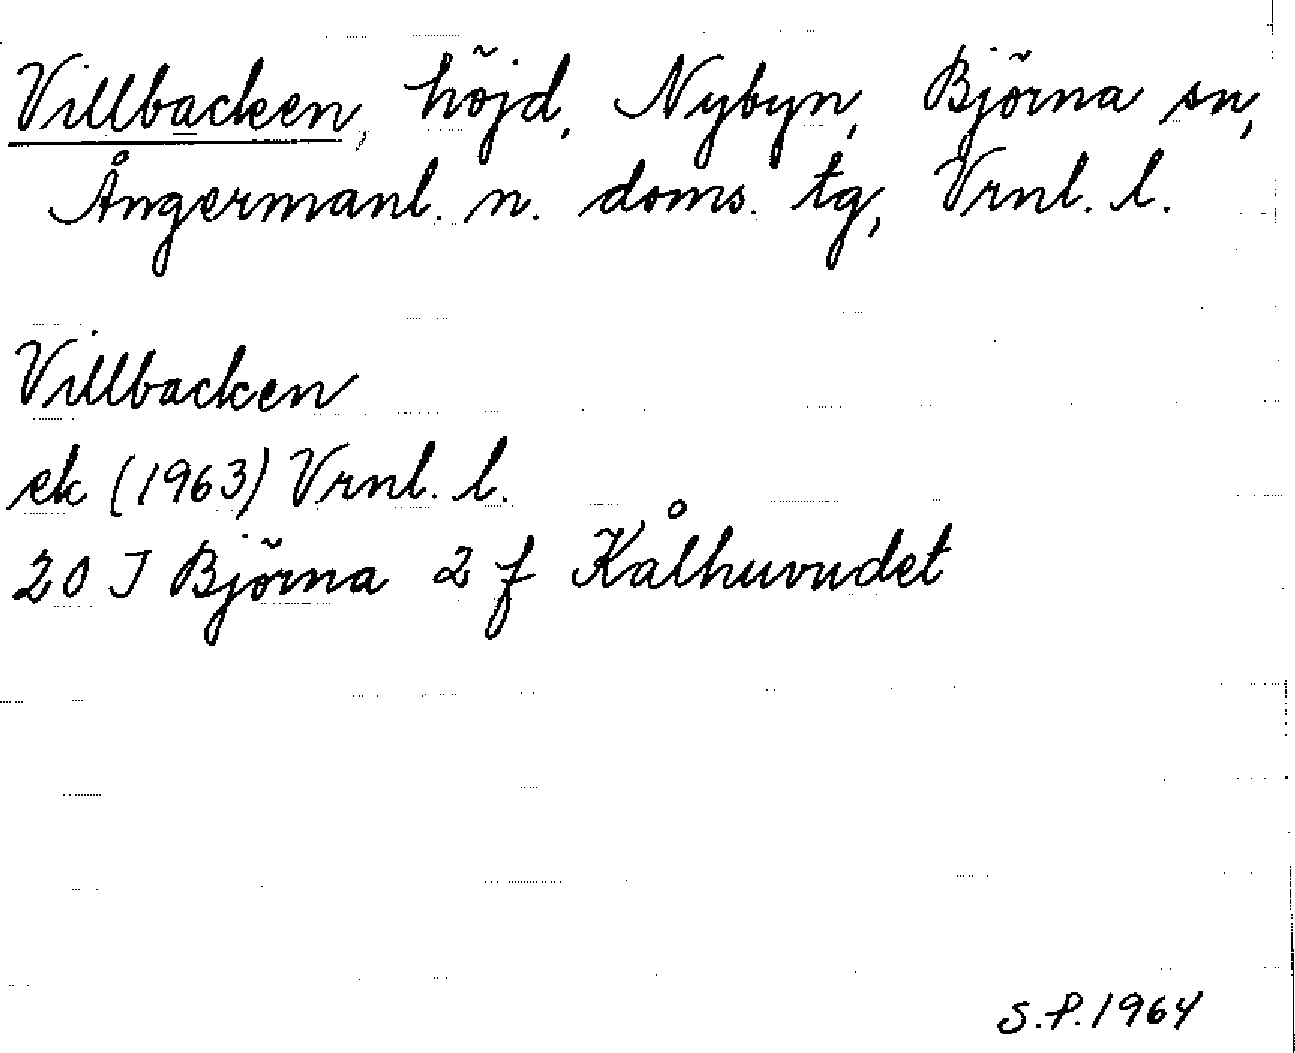 Villbacken, höjd, Nybyn, Björna sn,
Ångermanl. n. doms. tg, Vrnl. l.
Villbacken
ek (1963) Vrnl. l.
20 J Björna 2 f Kålhuvudet
S.P. 1964